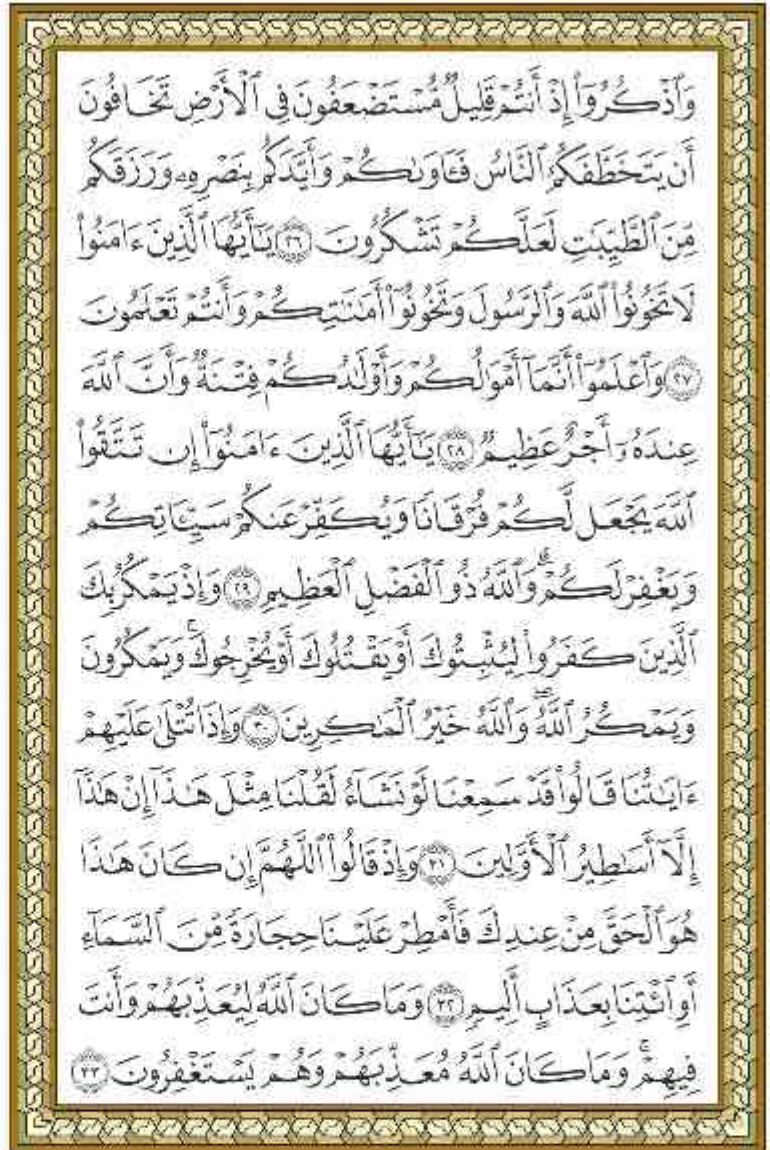 وَٱذْكُرُوٓا۟ إِذْ أَنتُمْ قَلِيلٌ مُّسْتَضْعَفُونَ فِى ٱلْأَرْضِ تَخَافُونَ
أَن يَتَخَطَّفَكُمُ ٱلنَّاسُ فَـَٔاوَىٰكُمْ وَأَيَّدَكُم بِنَصْرِهِۦ وَرَزَقَكُم
مِّنَ ٱلطَّيِّبَـٰتِ لَعَلَّكُمْ تَشْكُرُونَ ۝٢٦ يَـٰٓأَيُّهَا ٱلَّذِينَ ءَامَنُوا۟
لَا تَخُونُوا۟ ٱللَّهَ وَٱلرَّسُولَ وَتَخُونُوٓا۟ أَمَـٰنَـٰتِكُمْ وَأَنتُمْ تَعْلَمُونَ
۝٢٧ وَٱعْلَمُوٓا۟ أَنَّمَآ أَمْوَٰلُكُمْ وَأَوْلَـٰدُكُمْ فِتْنَةٌ وَأَنَّ ٱللَّهَ
عِندَهُۥٓ أَجْرٌ عَظِيمٌ ۝٢٨ يَـٰٓأَيُّهَا ٱلَّذِينَ ءَامَنُوٓا۟ إِن تَتَّقُوا۟
ٱللَّهَ يَجْعَل لَّكُمْ فُرْقَانًا وَيُكَفِّرْ عَنكُمْ سَيِّـَٔاتِكُمْ
وَيَغْفِرْ لَكُمْ ۗ وَٱللَّهُ ذُو ٱلْفَضْلِ ٱلْعَظِيمِ ۝٢٩ وَإِذْ يَمْكُرُ بِكَ
ٱلَّذِينَ كَفَرُوا۟ لِيُثْبِتُوكَ أَوْ يَقْتُلُوكَ أَوْ يُخْرِجُوكَ ۚ وَيَمْكُرُونَ
وَيَمْكُرُ ٱللَّهُ ۖ وَٱللَّهُ خَيْرُ ٱلْمَـٰكِرِينَ ۝٣٠ وَإِذَا تُتْلَىٰ عَلَيْهِمْ
ءَايَـٰتُنَا قَالُوا۟ قَدْ سَمِعْنَا لَوْ نَشَآءُ لَقُلْنَا مِثْلَ هَـٰذَآ إِنْ هَـٰذَآ
إِلَّآ أَسَـٰطِيرُ ٱلْأَوَّلِينَ ۝٣١ وَإِذْ قَالُوا۟ ٱللَّهُمَّ إِن كَانَ هَـٰذَا
هُوَ ٱلْحَقَّ مِنْ عِندِكَ فَأَمْطِرْ عَلَيْنَا حِجَارَةً مِّنَ ٱلسَّمَآءِ
أَوِ ٱئْتِنَا بِعَذَابٍ أَلِيمٍ ۝٣٢ وَمَا كَانَ ٱللَّهُ لِيُعَذِّبَهُمْ وَأَنتَ
فِيهِمْ ۚ وَمَا كَانَ ٱللَّهُ مُعَذِّبَهُمْ وَهُمْ يَسْتَغْفِرُونَ ۝٣٣